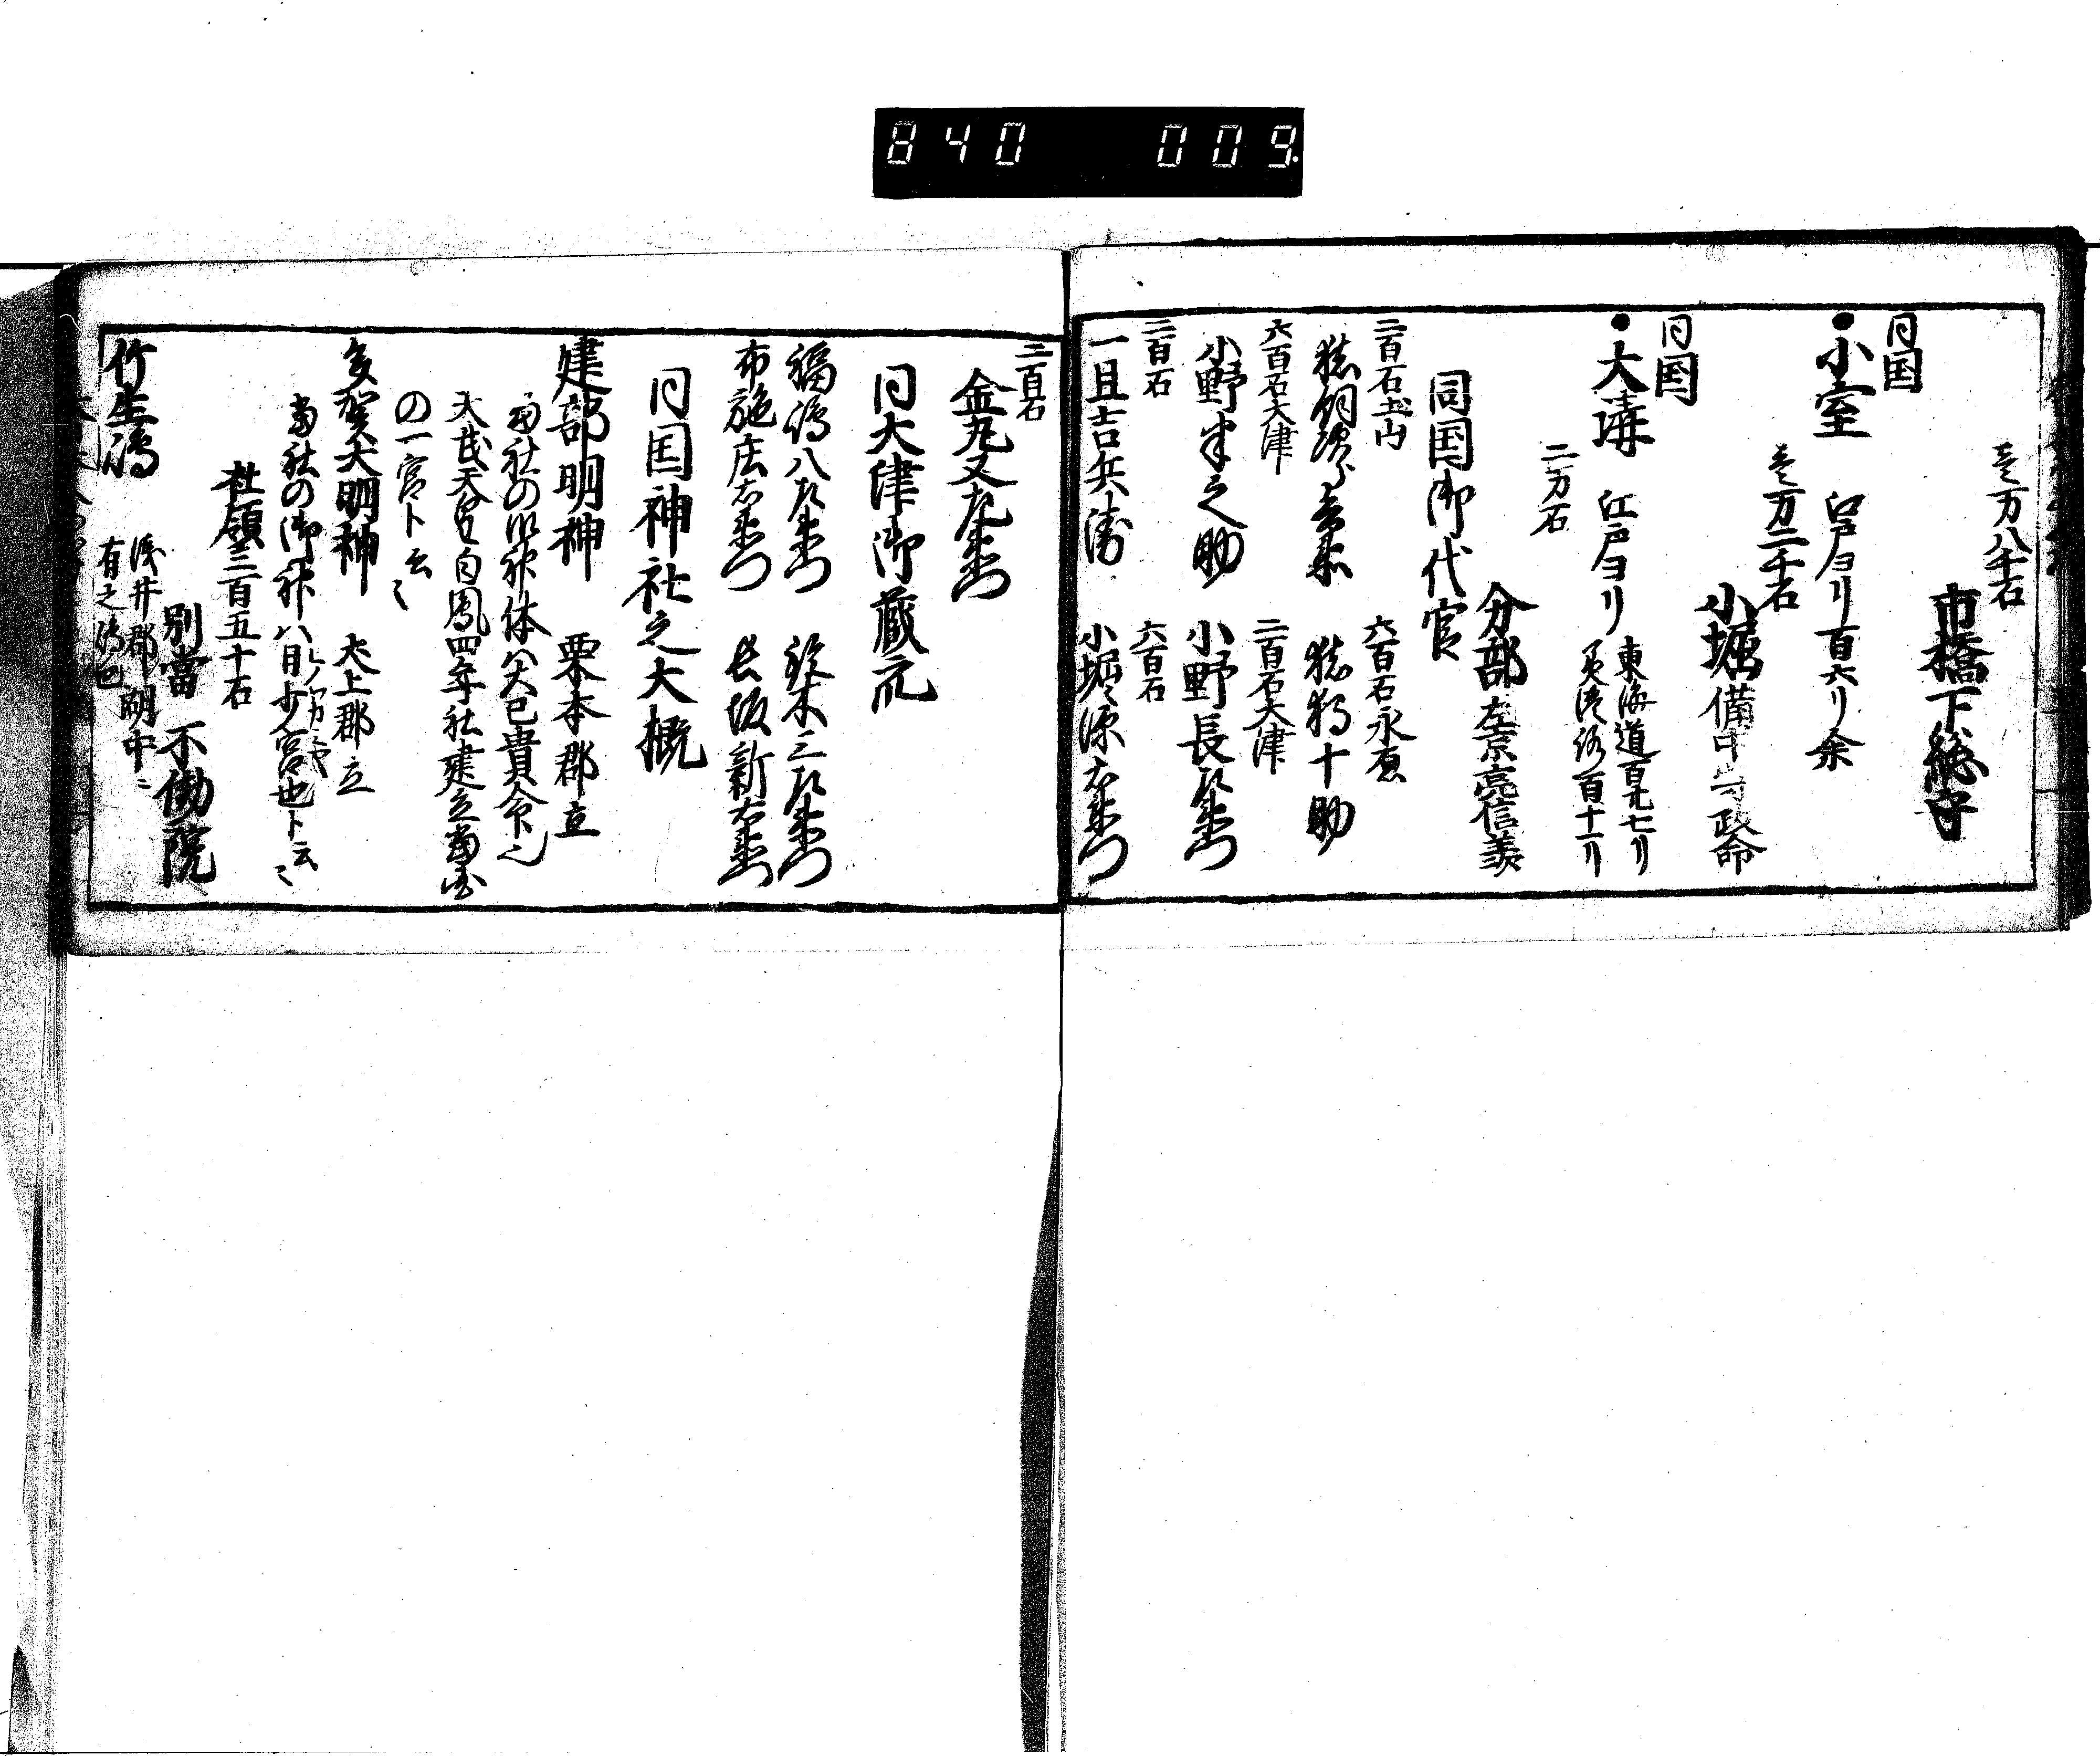 840 009.
壱万八千石
市橋下総守
同国
●小室 江戸ヨリ百六リ余
壱万二千石
小堀備中守政命
同国
●大溝 江戸ヨリ 東海道百十七リ
美濃路百十一リ
二万石
分部左京亮信美
同国御代官
二百石土山 六百石永原
猪飼 猪狩十助
六百石大津 二百石大津
小野半之助 小野長左衛門
二百石 六百石
一旦吉兵衛 小堀源右衛門
二百石
金丸又左衛門
同大津御蔵元
福嶋八左衛門 鈴木三左衛門
布施庄右衛門 長坂新右衛門
同国神社之大概
建部明神 栗本郡立
当社の御神体ハ大已貴命ト也
天武天皇白鳳四年社建立当国
の一宮ト云々
多賀大明神 犬上郡立
当社の御神ハ日少ノ宮也ト云々
ヒノワカミヤ
社領三百五十石
別當 不働院
竹生嶋 浅井郡湖中ニ
有之嶋也